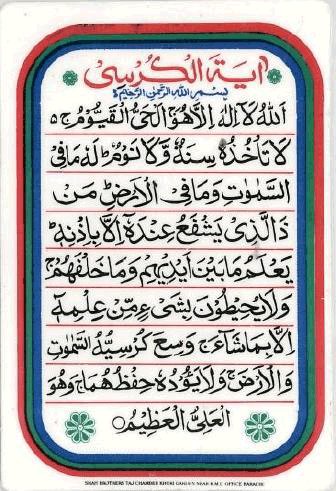 آية الكرسي
بسم الله الرحمن الرحيم
اَللّٰهُ لَآ اِلٰهَ اِلَّا هُوَ اَلْحَيُّ الْقَيُّوْمُ ج ٥
لَا تَأْخُذُهٗ سِنَةٌ وَّلَا نَوْمٌ ط لَهٗ مَا فِي
السَّمٰوٰتِ وَمَا فِي الْاَرْضِ ط مَنْ
ذَا الَّذِيْ يَشْفَعُ عِنْدَهٗٓ اِلَّا بِاِذْنِهٖ ط
يَعْلَمُ مَا بَيْنَ اَيْدِيْهِمْ وَمَا خَلْفَهُمْ ج
وَلَا يُحِيْطُوْنَ بِشَيْءٍ مِّنْ عِلْمِهٖٓ
اِلَّا بِمَا شَآءَ ج وَسِعَ كُرْسِيُّهُ السَّمٰوٰتِ
وَالْاَرْضَ ج وَلَا يَئُوْدُهٗ حِفْظُهُمَا ج وَهُوَ
الْعَلِيُّ الْعَظِيْمُ ○
SHAH BROTHERS TAJ CHAMBER KHORI GARDEN NEAR K.M.C. OFFICE KARACHI